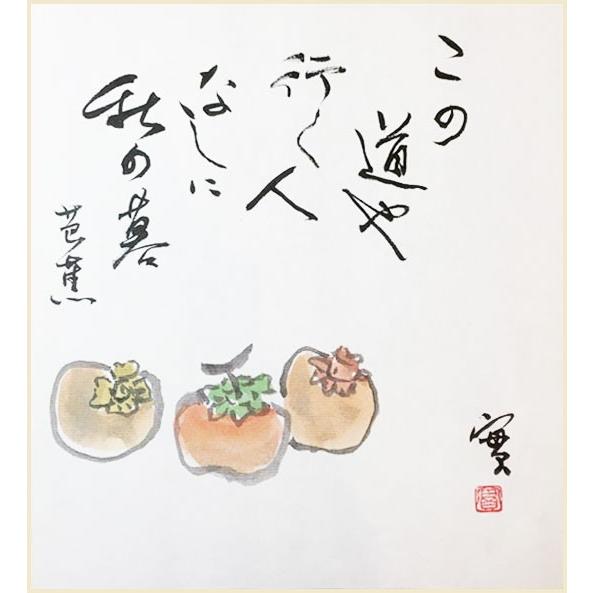 この
道や
行く人
なしに
秋の暮
芭蕉
實